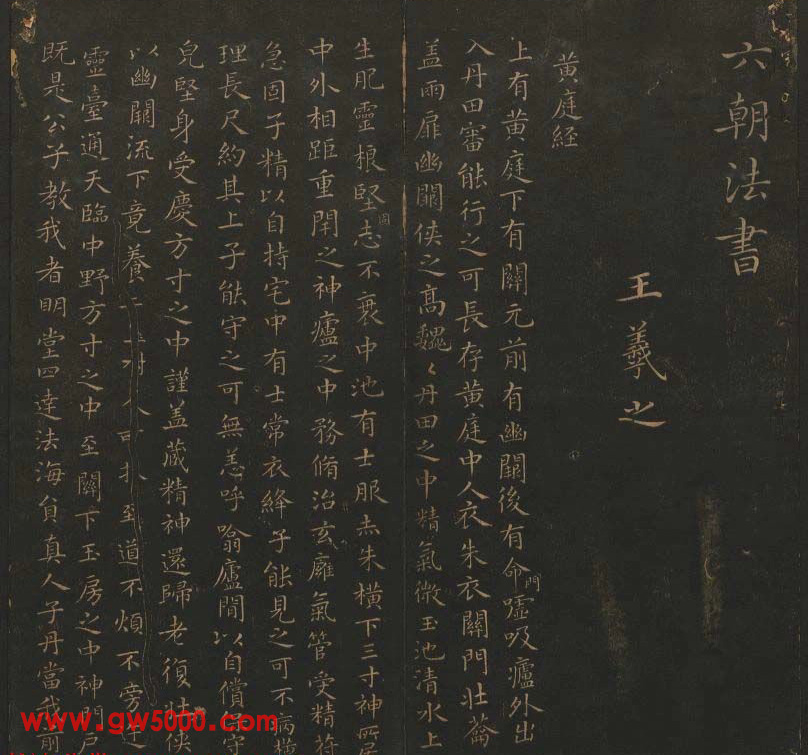 六朝法書
王羲之
黃庭経
上有黃庭下有關元前有幽闕後有命門噓吸廬外出
入丹田審能行之可長存黃庭中人衣朱衣關門壯蘥
盖兩扉幽闕侠之高巍〻丹田之中精氣微玉池清水上
生肥靈根堅固志不衰中池有士服赤朱橫下三寸神所居
中外相距重閉之神廬之中務脩治玄廱氣管受精符
急固子精以自持宅中有士常衣絳子能見之可不病橫
理長尺約其上子能守之可無恙呼噏廬間以自償子守
皃堅身受慶方寸之中謹盖藏精神還歸老復壯侠
以幽闕流下竟養道不煩不旁迕
靈臺通天臨中野方寸之中至關下玉房之中神門戶
既是公子教我者明堂四達法海負真人子丹當我前
www.gw5000.com